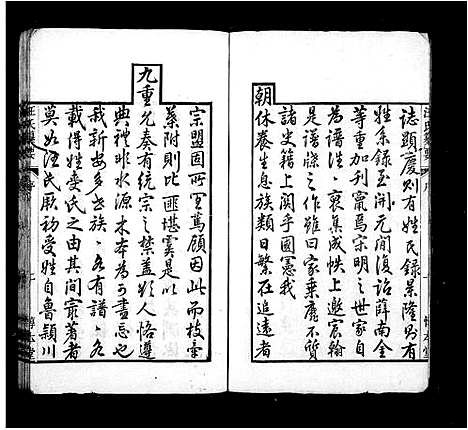 誌顯慶則有姓氏錄景隆則有
姓系錄至開元間復詔薛南金
等重加刊竄焉宋明之世家自
為譜諜裒集成帙上邀宸翰
是譜牒之作雖曰家乘靡不質
諸史籍上關乎國憲我
朝休養生息族類日繁在追遠者
宗盟固所宜篤顧因此而枝牽
葉附則比匪堪虞是以
九重允奏有統宗之禁蓋欲人恪遵
典禮非水源木本為可盡忘也
我新安多世族各有譜各
載得姓受氏之由其間最著者
莫如汪氏厥初受姓自魯潁川